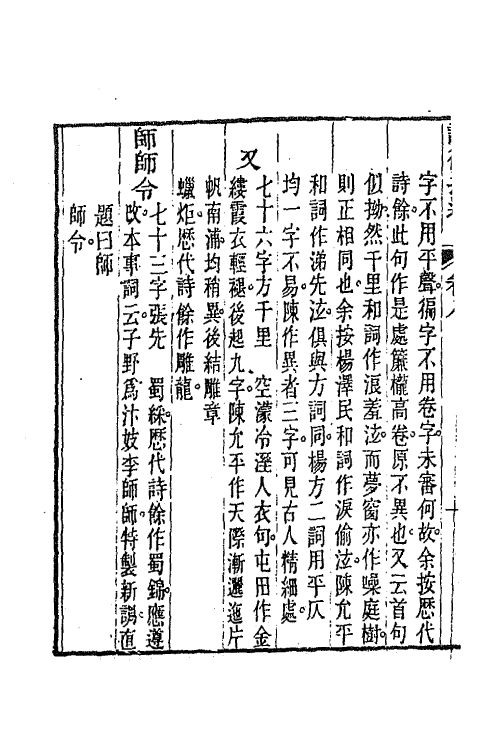 字不用平聲徧字不用卷字未審何故余按歷代
詩餘此句作是處簾櫳高卷原不異也又云首句
似拗然千里和詞作淚羞泫而夢窗亦作噪庭樹
則正相同也余按楊澤民和詞作淚偷泫陳允平
和詞作涕先泫俱與方詞同楊方二詞用平仄
均一字不易陳作異者三字可見古人精細處
又
七十六字方千里 空濛冷溼人衣句屯田作金
縷霞衣輕褪後起九字陳允平作天際漸邐迤片
帆南浦均稍異後結雕章
蠟炬歷代詩餘作雕龍
師師令
七十三字張先 蜀綵歷代詩餘作蜀錦應遵
改本事詞云子野爲汴妓李師師特製新調直
題曰師
師令
卷八